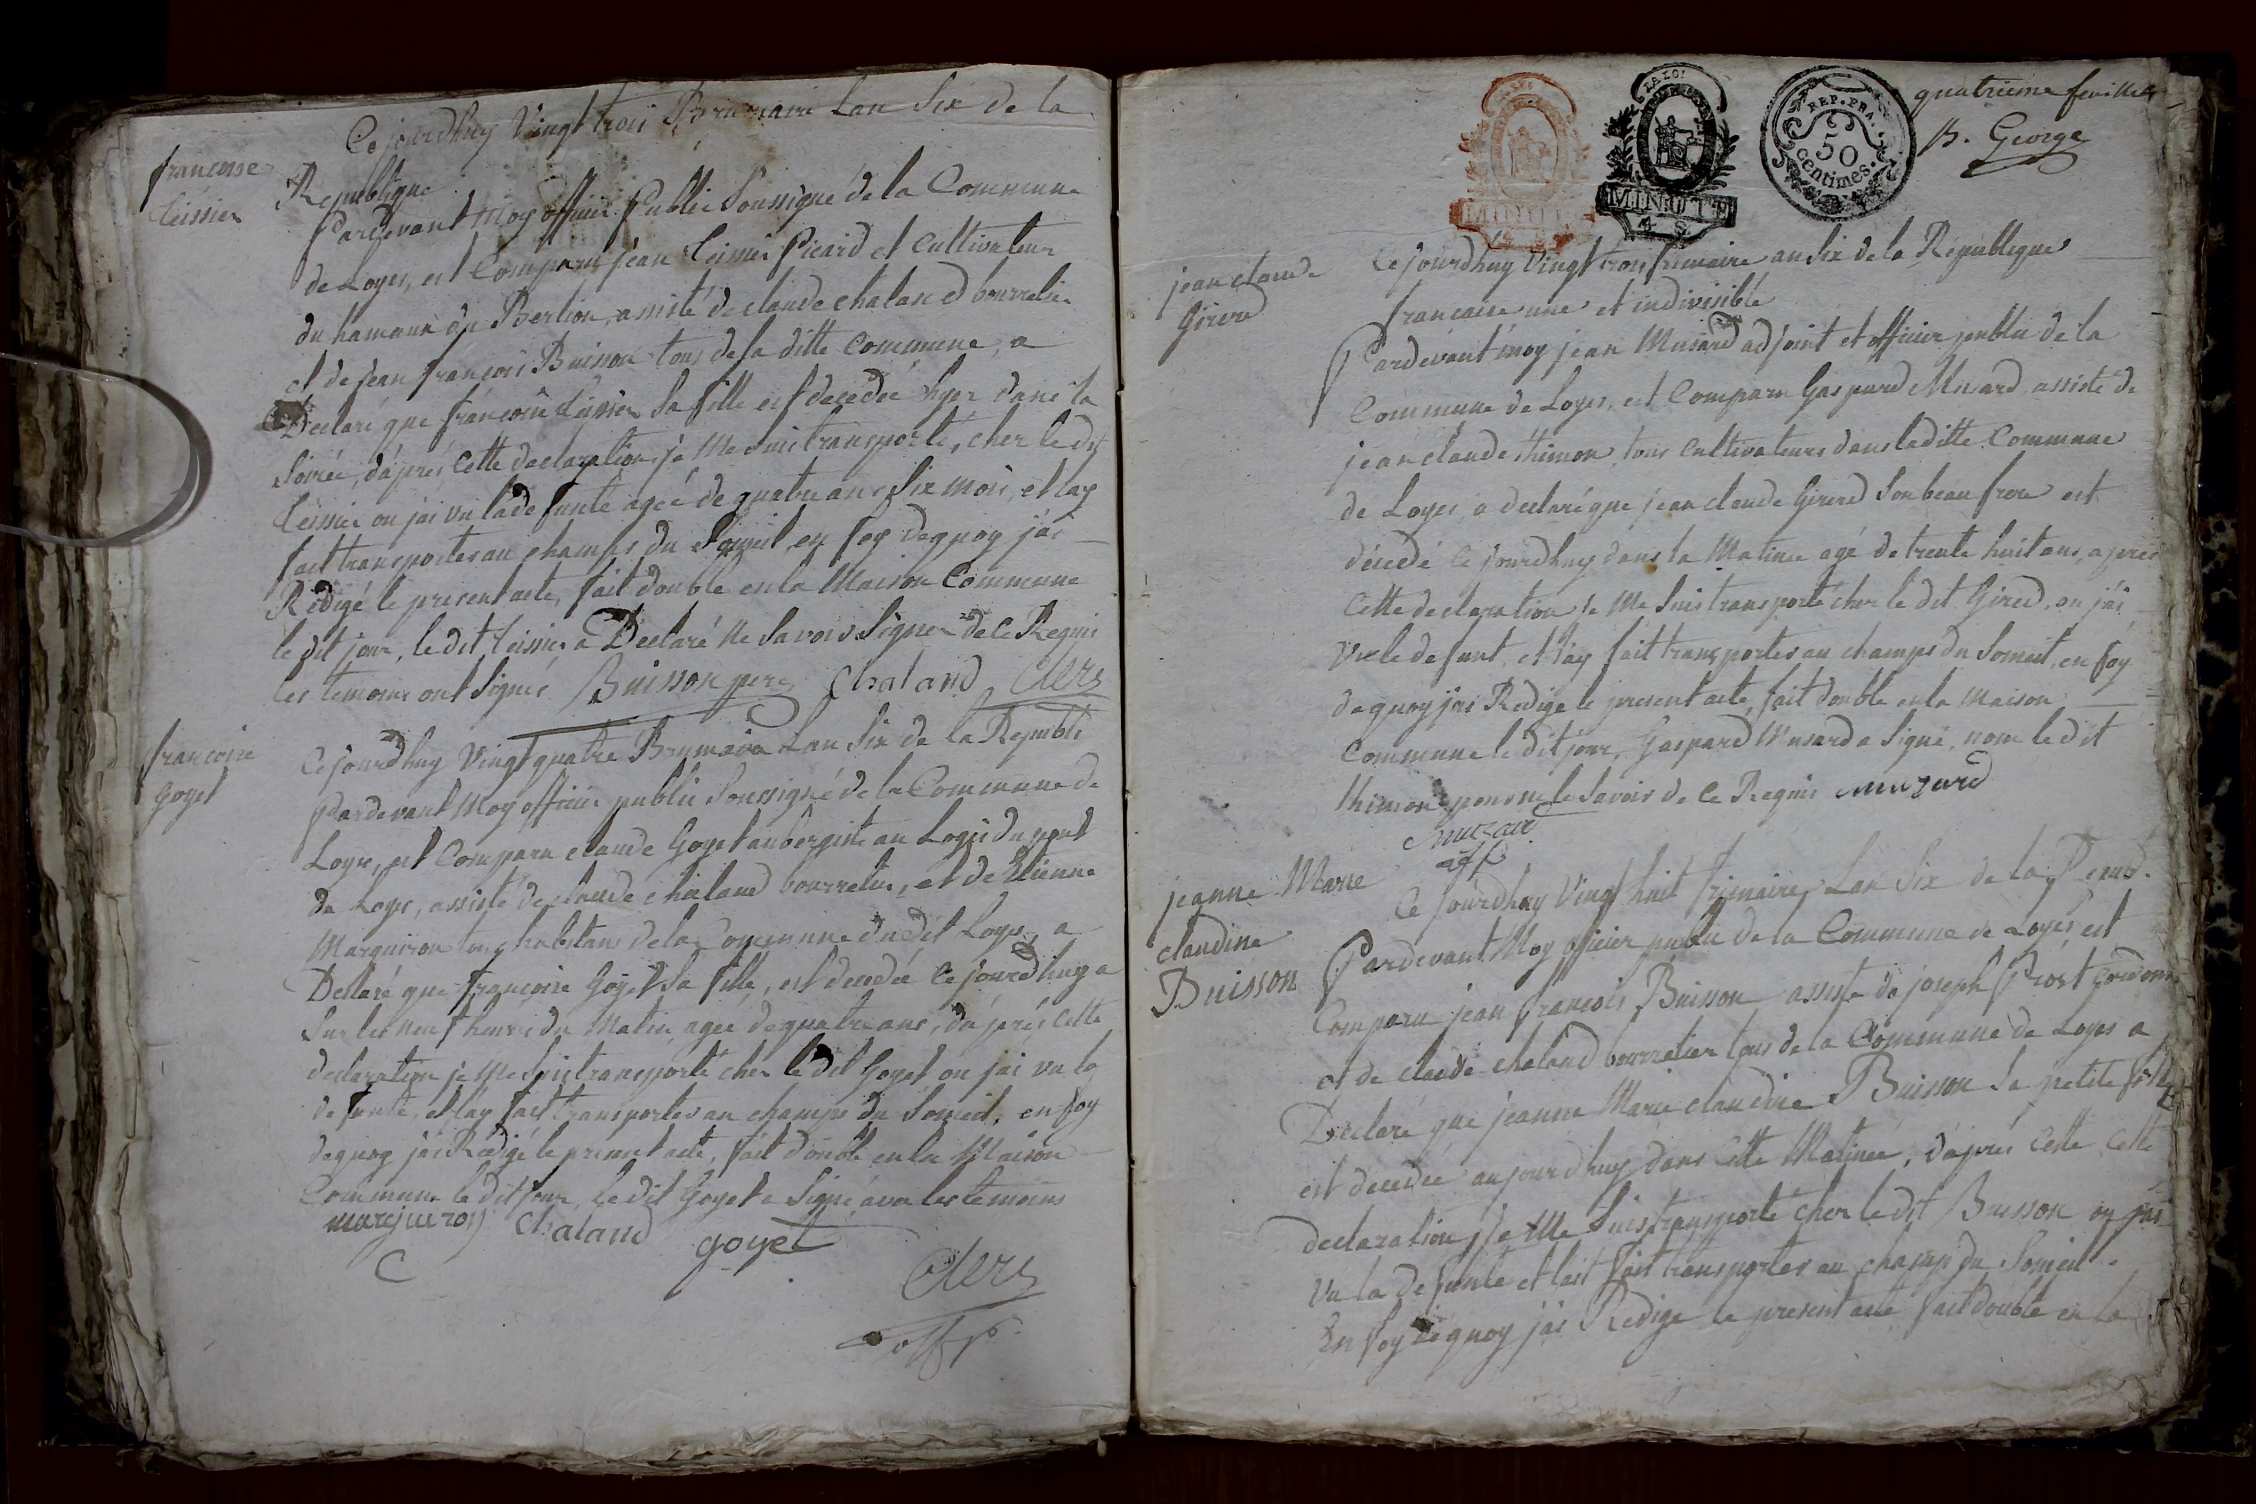 Ce jourdhuy Vingt trois Brumaire Lan Six de la
francoise
teissier
Republique
Pardevant Moy officier Public Soussigné de la Commune
de Loyes, est Comparu jean teissier Picard et Cultivateur
du hamaux de Berlion, assisté de claude chaland bourrelier
et de jean francois Buisson tous de la ditte Commune, a
Declaré que francoise teissier Sa fille est decedée hyer dans la
Soirée, d'apres Cette declaration je Me suis transporté, cher le dit
teissier ou jai vu la defunte agée de quatre ans Six mois, et lay
fait transporter au champs du Someil, en foy dequoy j'ai
Redigé le present acte, fait double en la Maison Commune
le dit jour, le dit teissier a Declaré Ne Savoir Signer de Ce Requis
les temoins ont Signés Buisson pere Chaland Clers
francoise
goyet
Ce jourdhuy Vingt quatre Brumaire Lan Six de la Republi
Pardevant Moy officier public Soussigné de la Commune de
Loyes, est Comparu claude Goyet aubergiste au Logis du pont
de Loyes, assisté de claude chaland bourrelier, et de Etienne
Marguiron tous habitans de la Commune du dit Loyes, a
Declaré que françoise Goyet Sa fille, est decedée Ce jourdhuy a
Sur les neuf heures du Matin, agée de quatre ans, d'après Cette
declaration je Me Suis transporté cher le dit Goyet, ou jai vu la
defunte, et lay fait transporter au champs du Someil, en foy
dequoy jai Redigé le present acte, fait double en la Maison
Commune le dit jour, le dit Goyet a Signé avec les temoins
marguiron Chaland goyet
Clers
off p
quatrieme feuillet
B. George
LA LOI
MINUTE
4 S
REP. FRA.
50
centimes
jean claude
Girerd
Ce jourdhuy Vingt trois frimaire an Six de la Republique
francaise une et indivisible
Pardevant moy jean Musard adjoint et officier public de la
Commune de Loyes, est Comparu Gaspard Musard assisté de
jean claude thimon tous Cultivateurs dans la ditte Commune
de Loyes, a declaré que jean claude Girerd Son beau frere est
decedé Ce jourdhuy dans la Matinée agé de trente huit ans, apres
Cette declaration je Me Suis transporté cher le dit Girerd, ou j'ai
Vu le defunt, et l'ay fait transporter au champs du Someil, en foy
dequoy jai Redigé le present acte, fait double en la Maison
Commune le dit jour, Gaspard Musard a Signé, non le dit
thimon pour ne le Savoir de Ce Requis muzard
muzard
off
jeanne Marie
claudine
Buisson
Ce jourdhuy Vingt huit frimaire Lan Six de la Repub.
Pardevant Moy officier public de la Commune de Loyes est
Comparu jean francois Buisson assisté de joseph Prost Cordonn
et de claude chaland bourrelier tous de la Commune de Loyes a
Declaré que jeanne Marie claudine Buisson Sa petite fille
est decedée aujourdhuy dans Cette Matinée, d'après Cette Cette
declaration, je Me Suis transporté cher le dit Buisson ou jai
Vu la defunte et lait fait transporter au champ du Someil.
En foy dequoy jai Redigé le present acte fait double en la